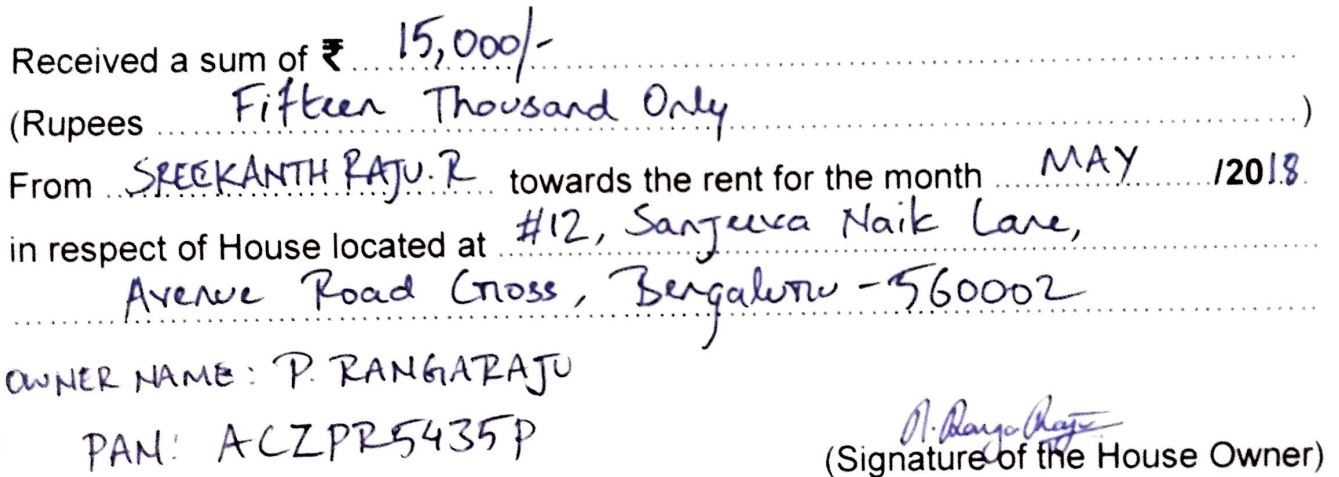 Received a sum of ₹ 15,000/-
(Rupees Fifteen Thousand Only)
From SREEKANTH RAJU.R towards the rent for the month MAY /2018
in respect of House located at #12, Sanjeeva Naik Lane,
Avenue Road Cross, Bengaluru - 560002
OWNER NAME: P. RANGARAJU
PAN: ACZPR5435P
P. Ranga Raju
(Signature of the House Owner)